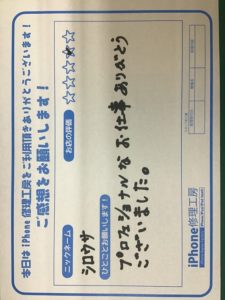 本日は iPhone 修理工房をご利用頂きありがとうございます！
ご感想をお願いします！
ニックネーム
シロウサ
お店の評価
☆☆☆☆☆
ひとことお願いします！
プロフェショナルなお仕事ありがとう
ございました。
iPhone修理工房